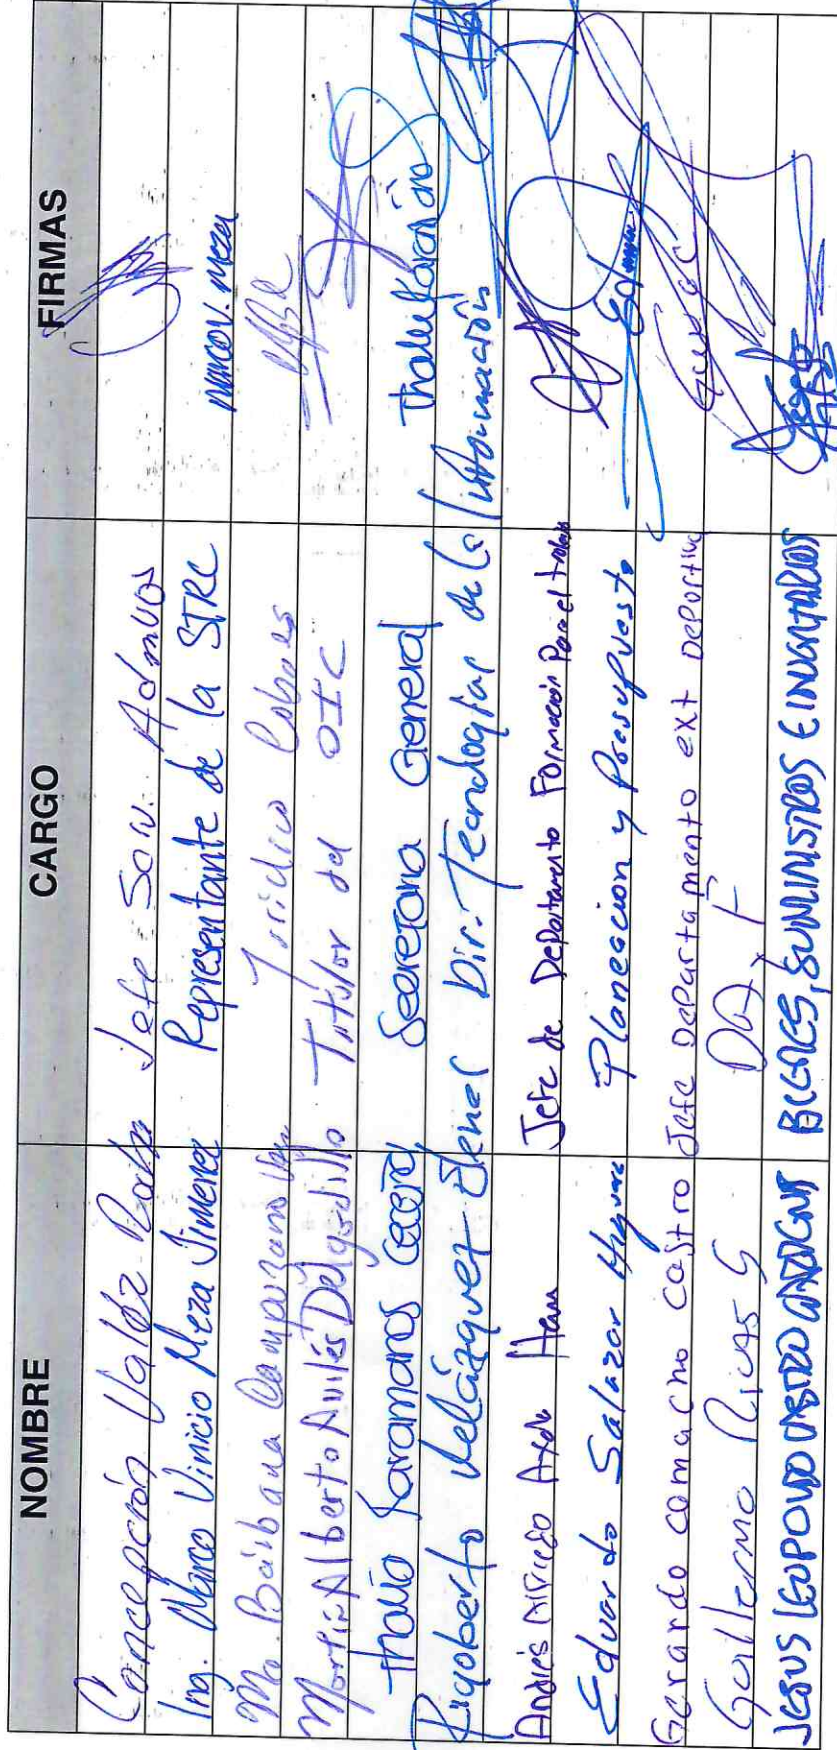 NOMBRE CARGO FIRMAS
Concepción Valdéz Jefe Serv. Admvos
Ing. Marco Vinicio Meza Jimenez Representante de la STRC Marco V. Meza
Ma. Bárbara Campuzano Vega Jurídico
Martín Alberto Avilés Delgadillo Titular del OIC
Thalia Secretaria General
Rigoberto Velázquez Dir. Tecnologías de la Información
Andrés Alfredo Jefe de Departamento Formación Para el trabajo
Eduardo Salazar Planeación y Presupuesto
Gerardo camacho castro Jefe Departamento ext Deportiva
Guillermo Rivas G D A y F
JESUS LEOPOLDO CASTRO BIENES, SUMINISTROS E INVENTARIOS